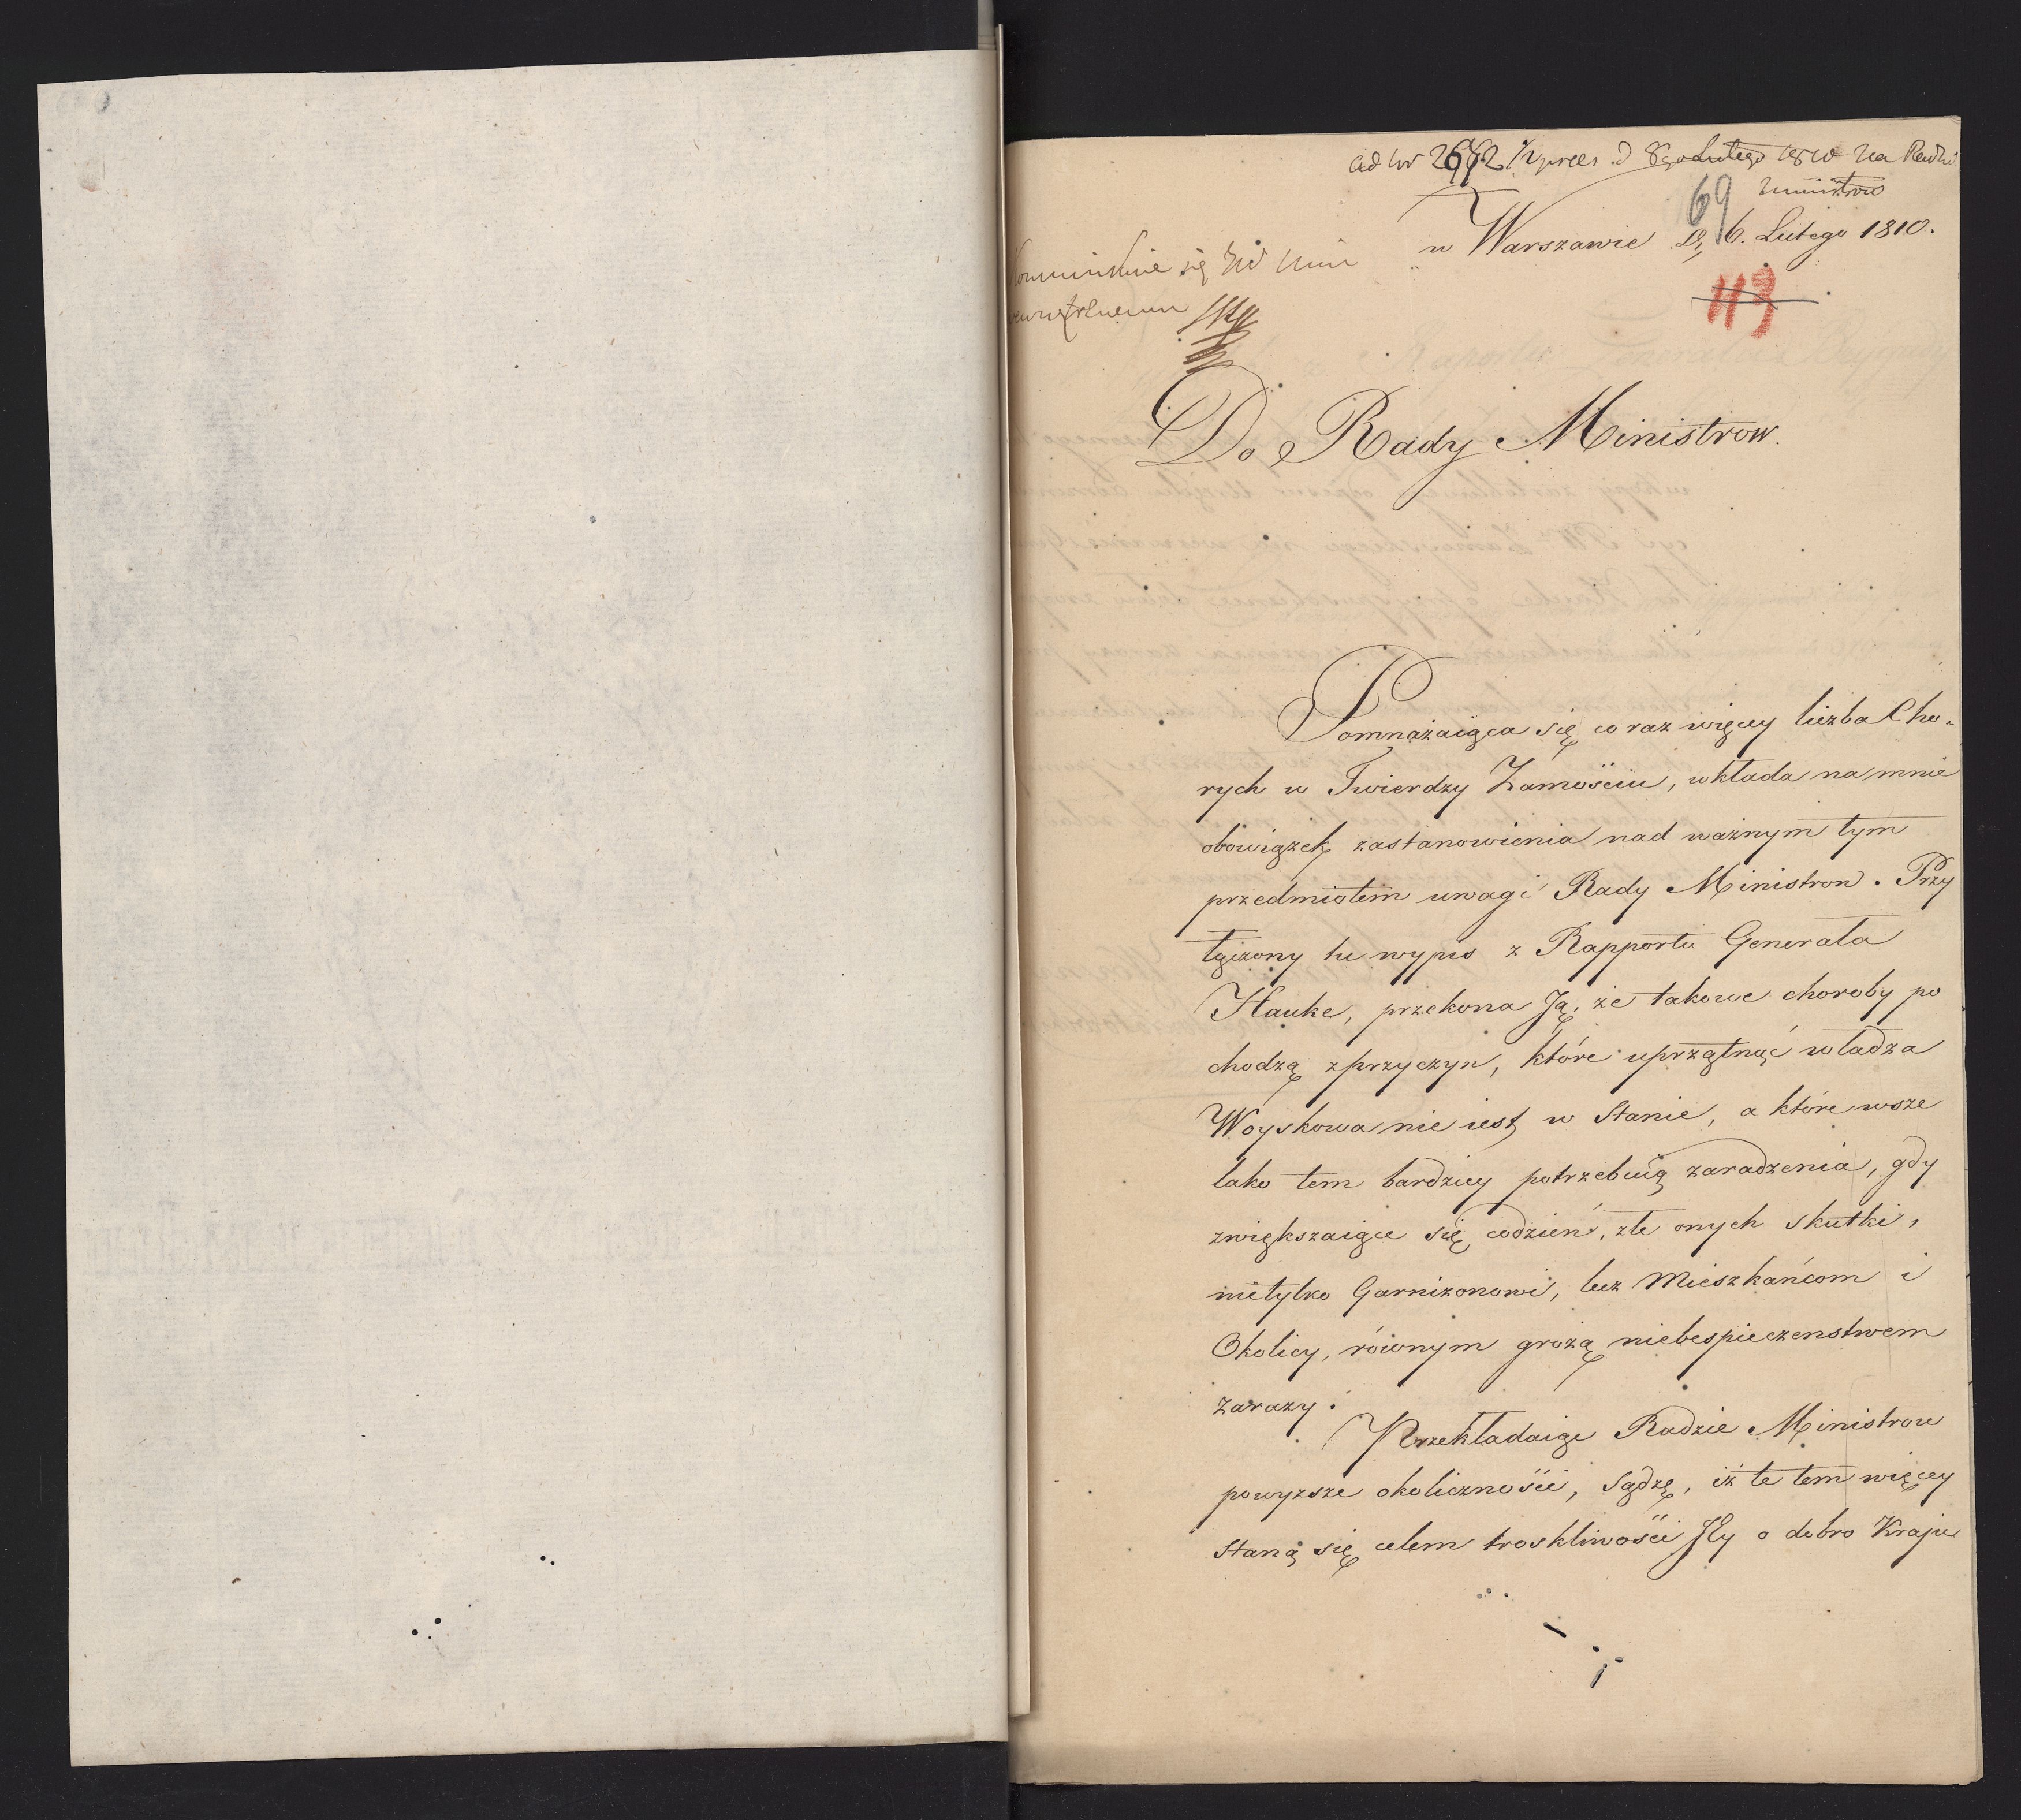 ad Nr 2672 ½ pres. d 8go Lutego 1810 na Radzie
Ministrow
69
w Warszawie D. 6. Lutego 1810.
113
się
Do Rady Ministrow.
Pomnażaiąca się co raz więcey liczba Cho-
rych w Twierdzy Zamościu, wkłada na mnie
obowiązek zastanowienia nad ważnym tym
przedmiotem uwagi Rady Ministrow. Przy
łączony tu wypis z Rapportu Generała
Hauke, przekona Ją, że takowe choroby po
chodzą z przyczyn, które uprzątnąć władza
Woyskowa nie iest w Stanie, a które wsze
lako tem bardziey potrzebuią zaradzenia, gdy
zwiększaiące się codzień, złe onych skutki,
nietylko Garnizonowi, lecz Mieszkańcom i
Okolicy, równym grożą niebespieczenstwem
zarazy.
Przekładaiąc Radzie Ministrow
powyzsze okoliczności, Sądzę, iż te tem więcey
Staną się celem troskliwości JEy o dobro Kraju